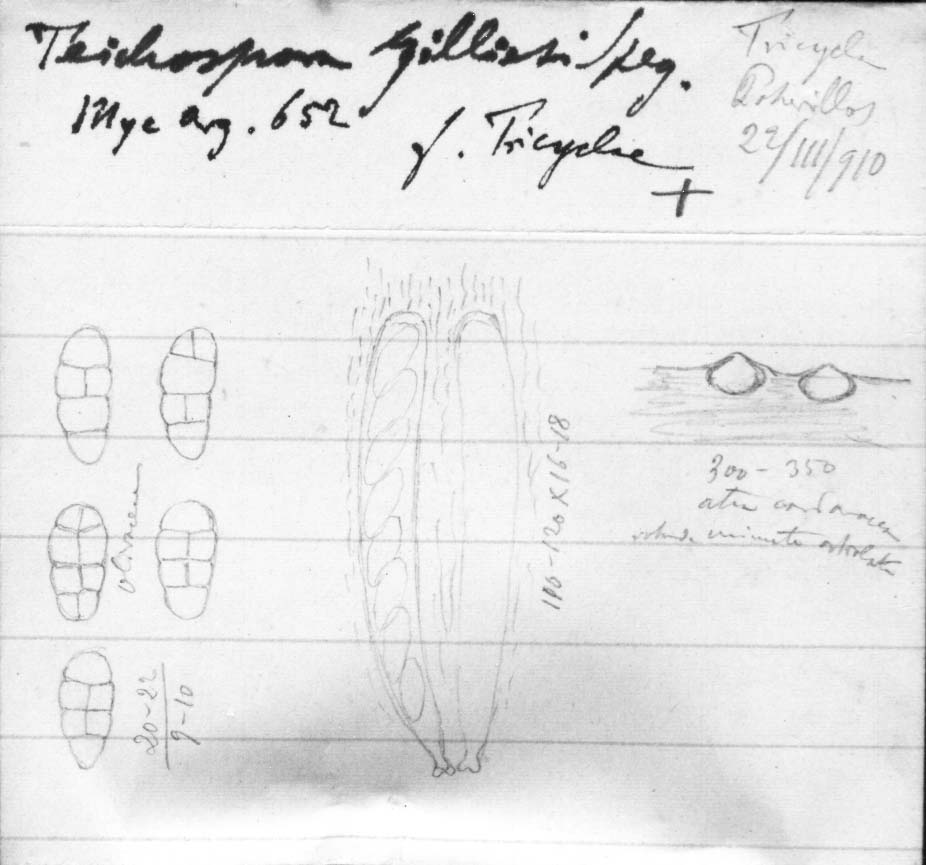 Teichospora Gilliesi Speg.
Myc Arg. 652
f. Tricyclae
+
Tricycla
Potrerillos
22/III/910
olivacea
20-22
9-10
100-120 X 16-18
300-350
atra
minute ostiolata